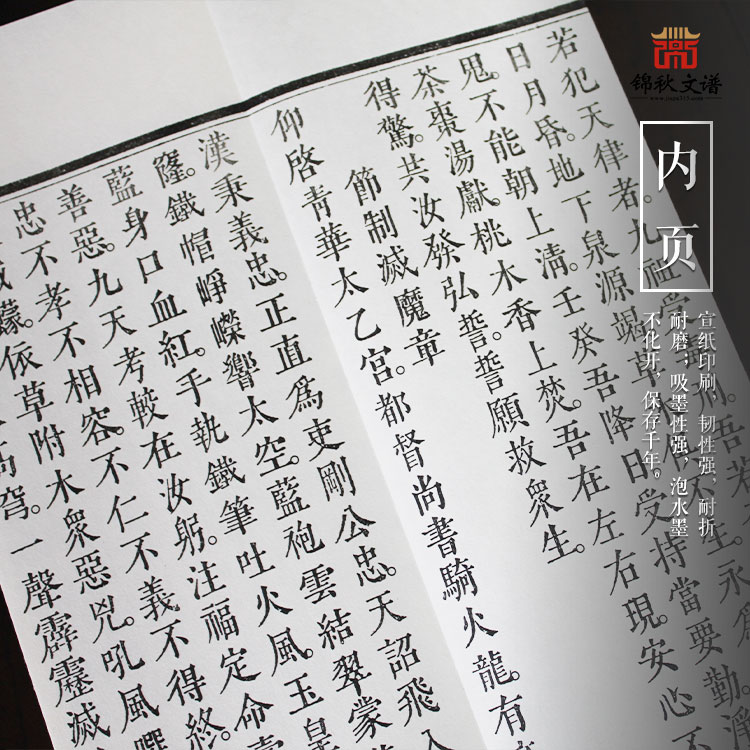 锦秋文谱
内页
宣纸印刷，韧性强，耐折
耐磨，吸墨性强，泡水墨
不化开，保存千年。
若犯天律者。九祖受
日月昏。地下泉源竭。草木俱不生。永
鬼。不能朝上清。壬癸吾降日。受持當要勤。
茶棗湯獻。桃木香上焚。吾在左右現。安心
得驚。共汝發弘誓。誓願救衆生。
節制滅魔章
仰啓青華太乙宮。都督尚書騎火龍。有
漢秉義忠。正直爲吏剛公忠。天詔飛入
窿。鐵帽崢嶸響太空。藍袍雲結翠蒙
藍身口血紅。手執鐵筆吐火風。玉皇
善惡。九天考較在汝躬。注福定命
忠不孝不相容。不仁不義不得終。
朦。依草附木衆惡兇。吼風
穹。一聲霹靂滅